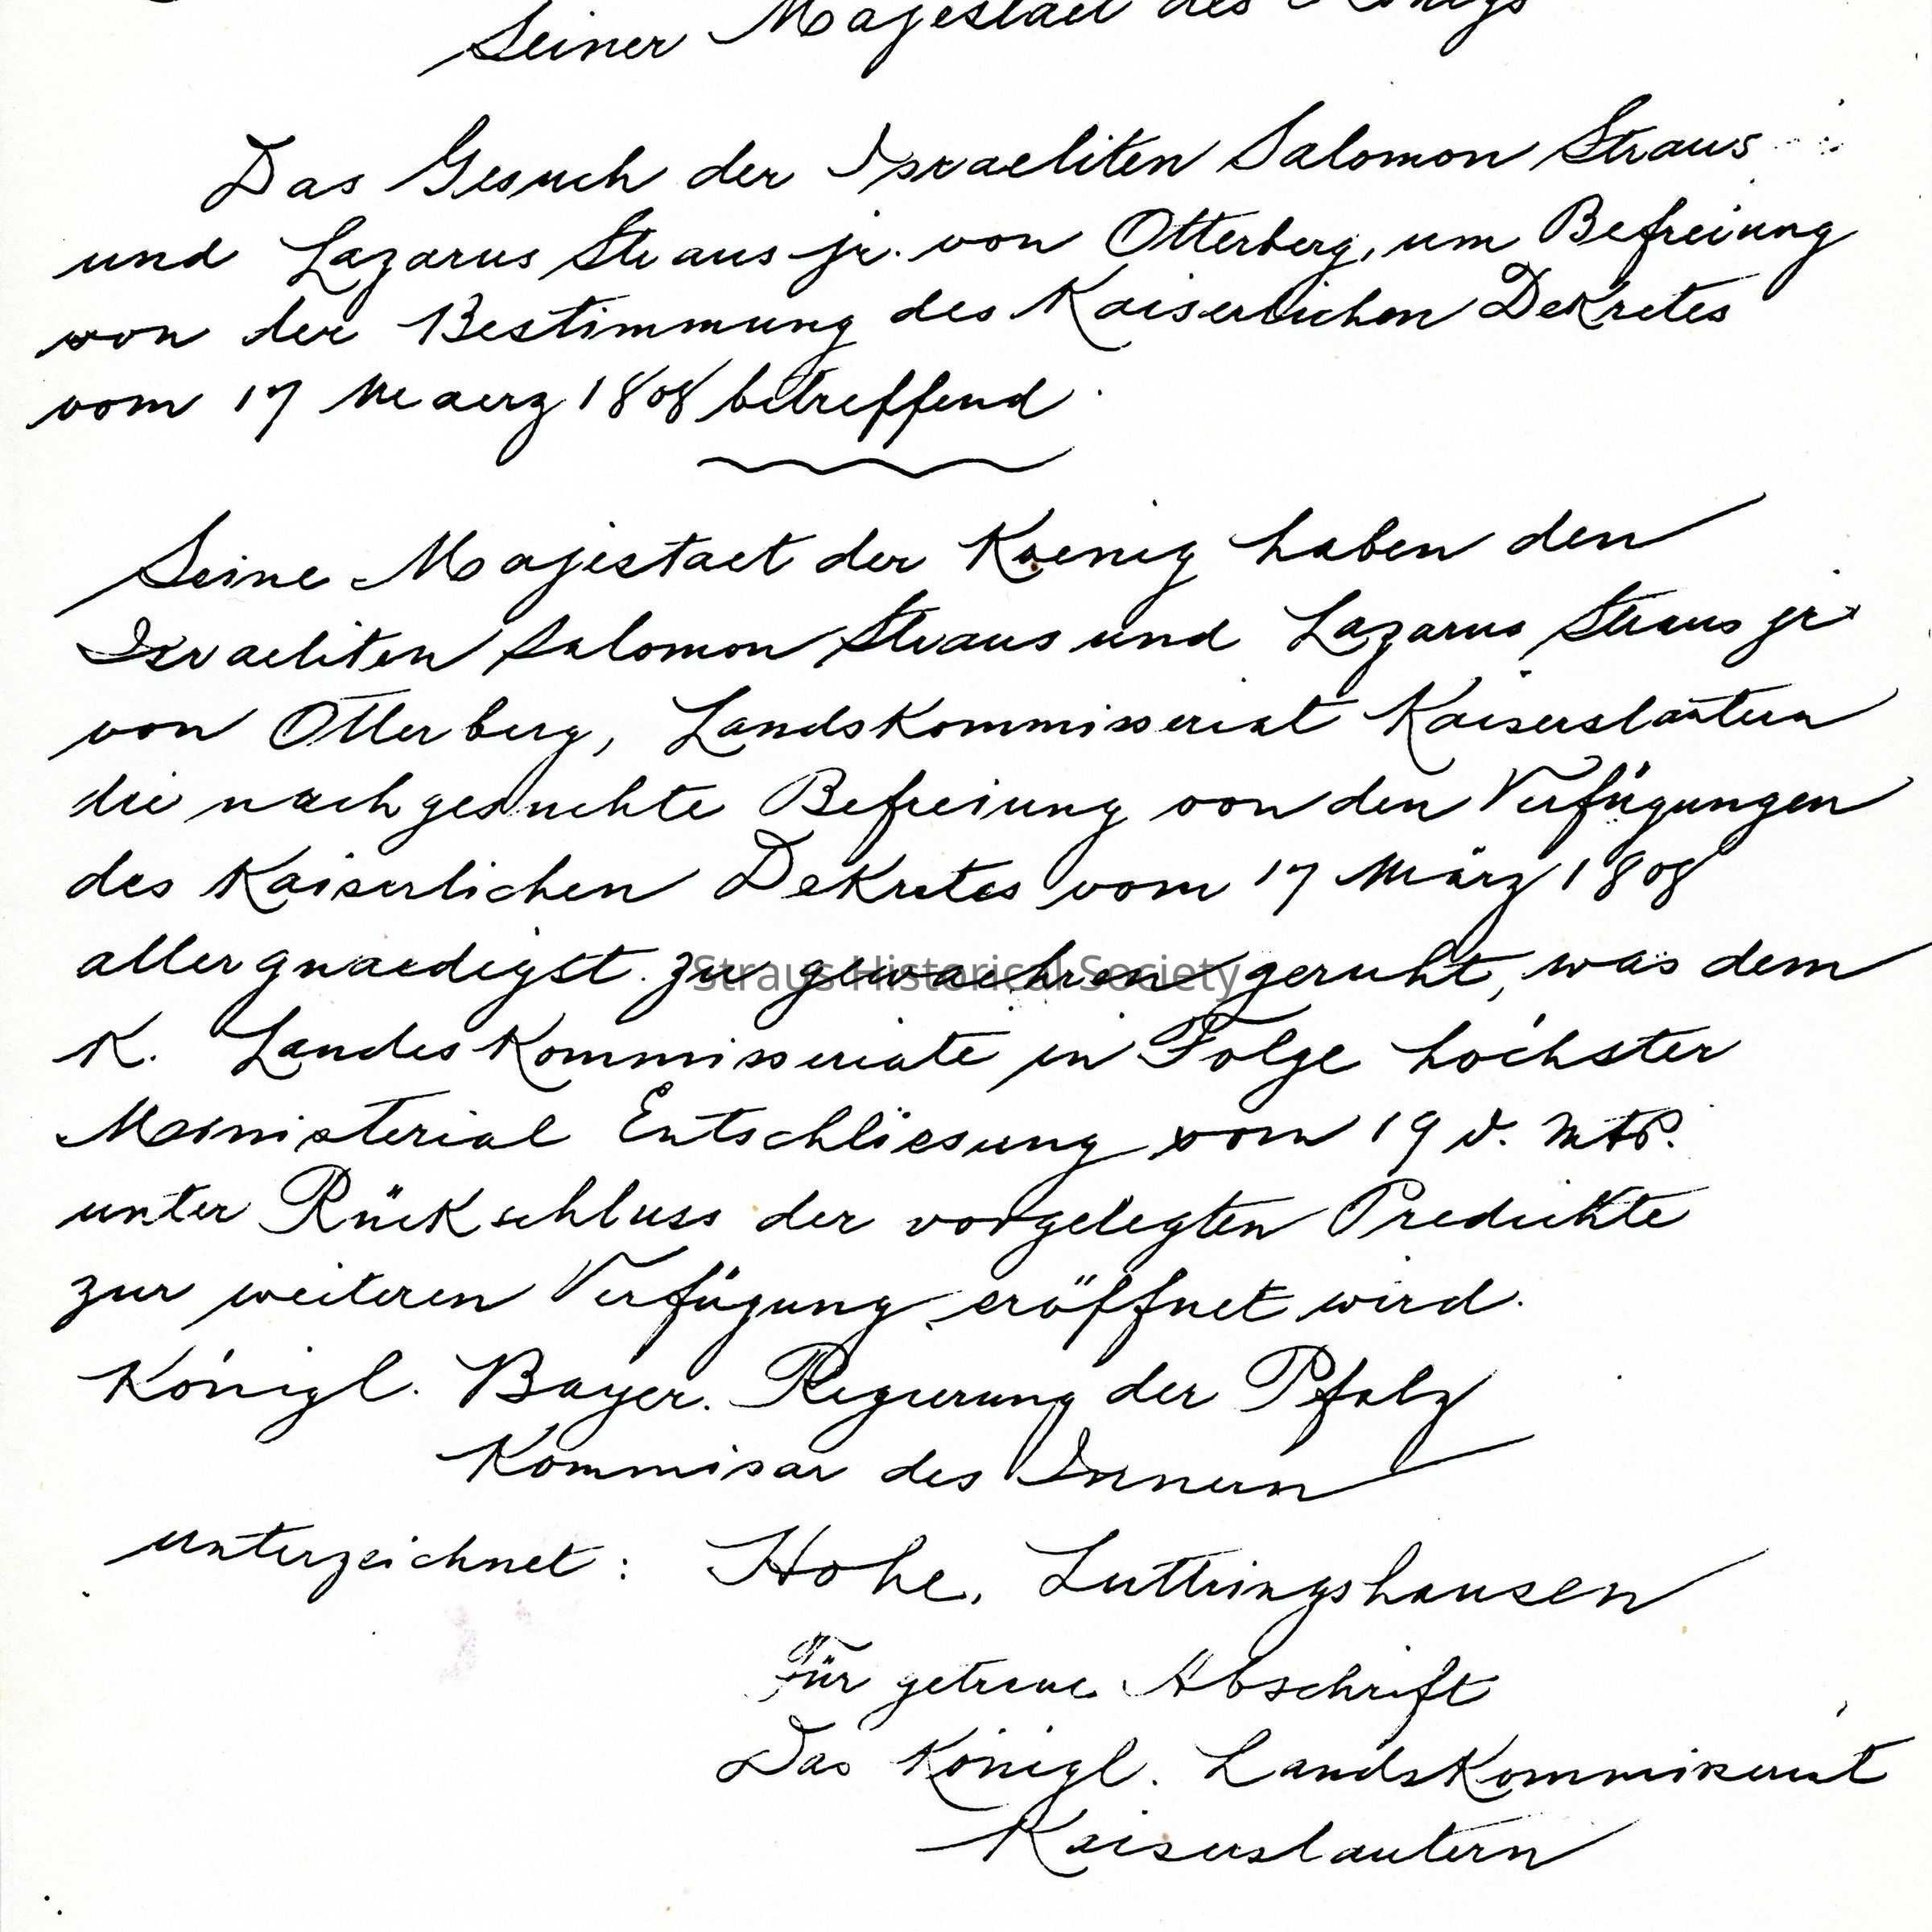 Seiner Majestaet des Königs
Das Gesuch der Israeliten Salomon Straus
und Lazarus Straus jr. von Otterberg, um Befreiung
von der Bestimmung des Kaiserlichen Dekretes
vom 17 Maerz 1808 betreffend.
Seine Majestaet der Koenig haben den
Israeliten Salomon Straus und Lazarus Straus jr.
von Otterberg, Landskommisseriat Kaiserslautern
die nachgesuchte Befreiung von den Verfügungen
des Kaiserlichen Dekretes vom 17 März 1808
allergnaedigst zu gewaehren geruht, was dem
Straus Historical Society
K. Landeskommisseriate in Folge höchster
Ministerial Entschliesung vom 19 d. Mts.
unter Rückschluss der vorgelegten Predickte
zur weiteren Verfügung eröffnet wird.
Königl. Bayer. Regierung der Pfalz
Kommisar des Innern
unterzeichnet: Hohe, Luttringshausen
Für getreue Abschrift
Das Königl. Landskommiseriat
Kaiserslautern